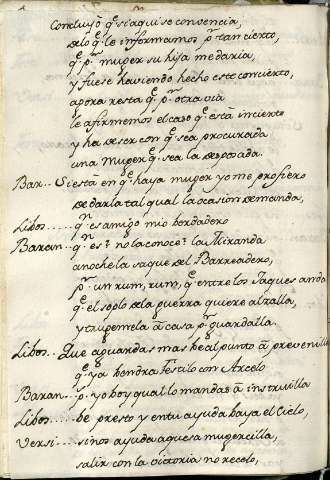 Concluyo q̃ si aqui se convencia,
de lo q̃ le informamos pr. tan cierto,
q̃ pr. muger su hija me daria,
y fuese haviendo hecho este concierto,
agora resta q̃ pr. otra via
le afirmemos el caso q̃ està incierto
y ha de ser con q̃ sea procurada
una Muger q̃ sea la desposada.
Bar... Si està en q̃ haya muger yo me profiero
de darla tal qual la ocasion demanda,
Libos.... qn. es amigo mio berdadero
Baran... qn. es? no la conoce? la Miranda
anoche la saque del Barreadero,
pr. un rum, rum, q̃ entre los Jaques anda
q̃ el soplo de la guerra quiere alzalla,
y trugemela à casa pr. guardalla.
Libos... Que aguardas mas be al punto à prevenilla
q̃ ya hendra Festilo con Arcelo
Baran... pr. yo boy qual lo mandas à instruilla
Libos..... be presto y en tu ayuda haya el Cielo,
Versi..... si nos ayuda aquesa mugercilla,
salir con la victoria no recelo,